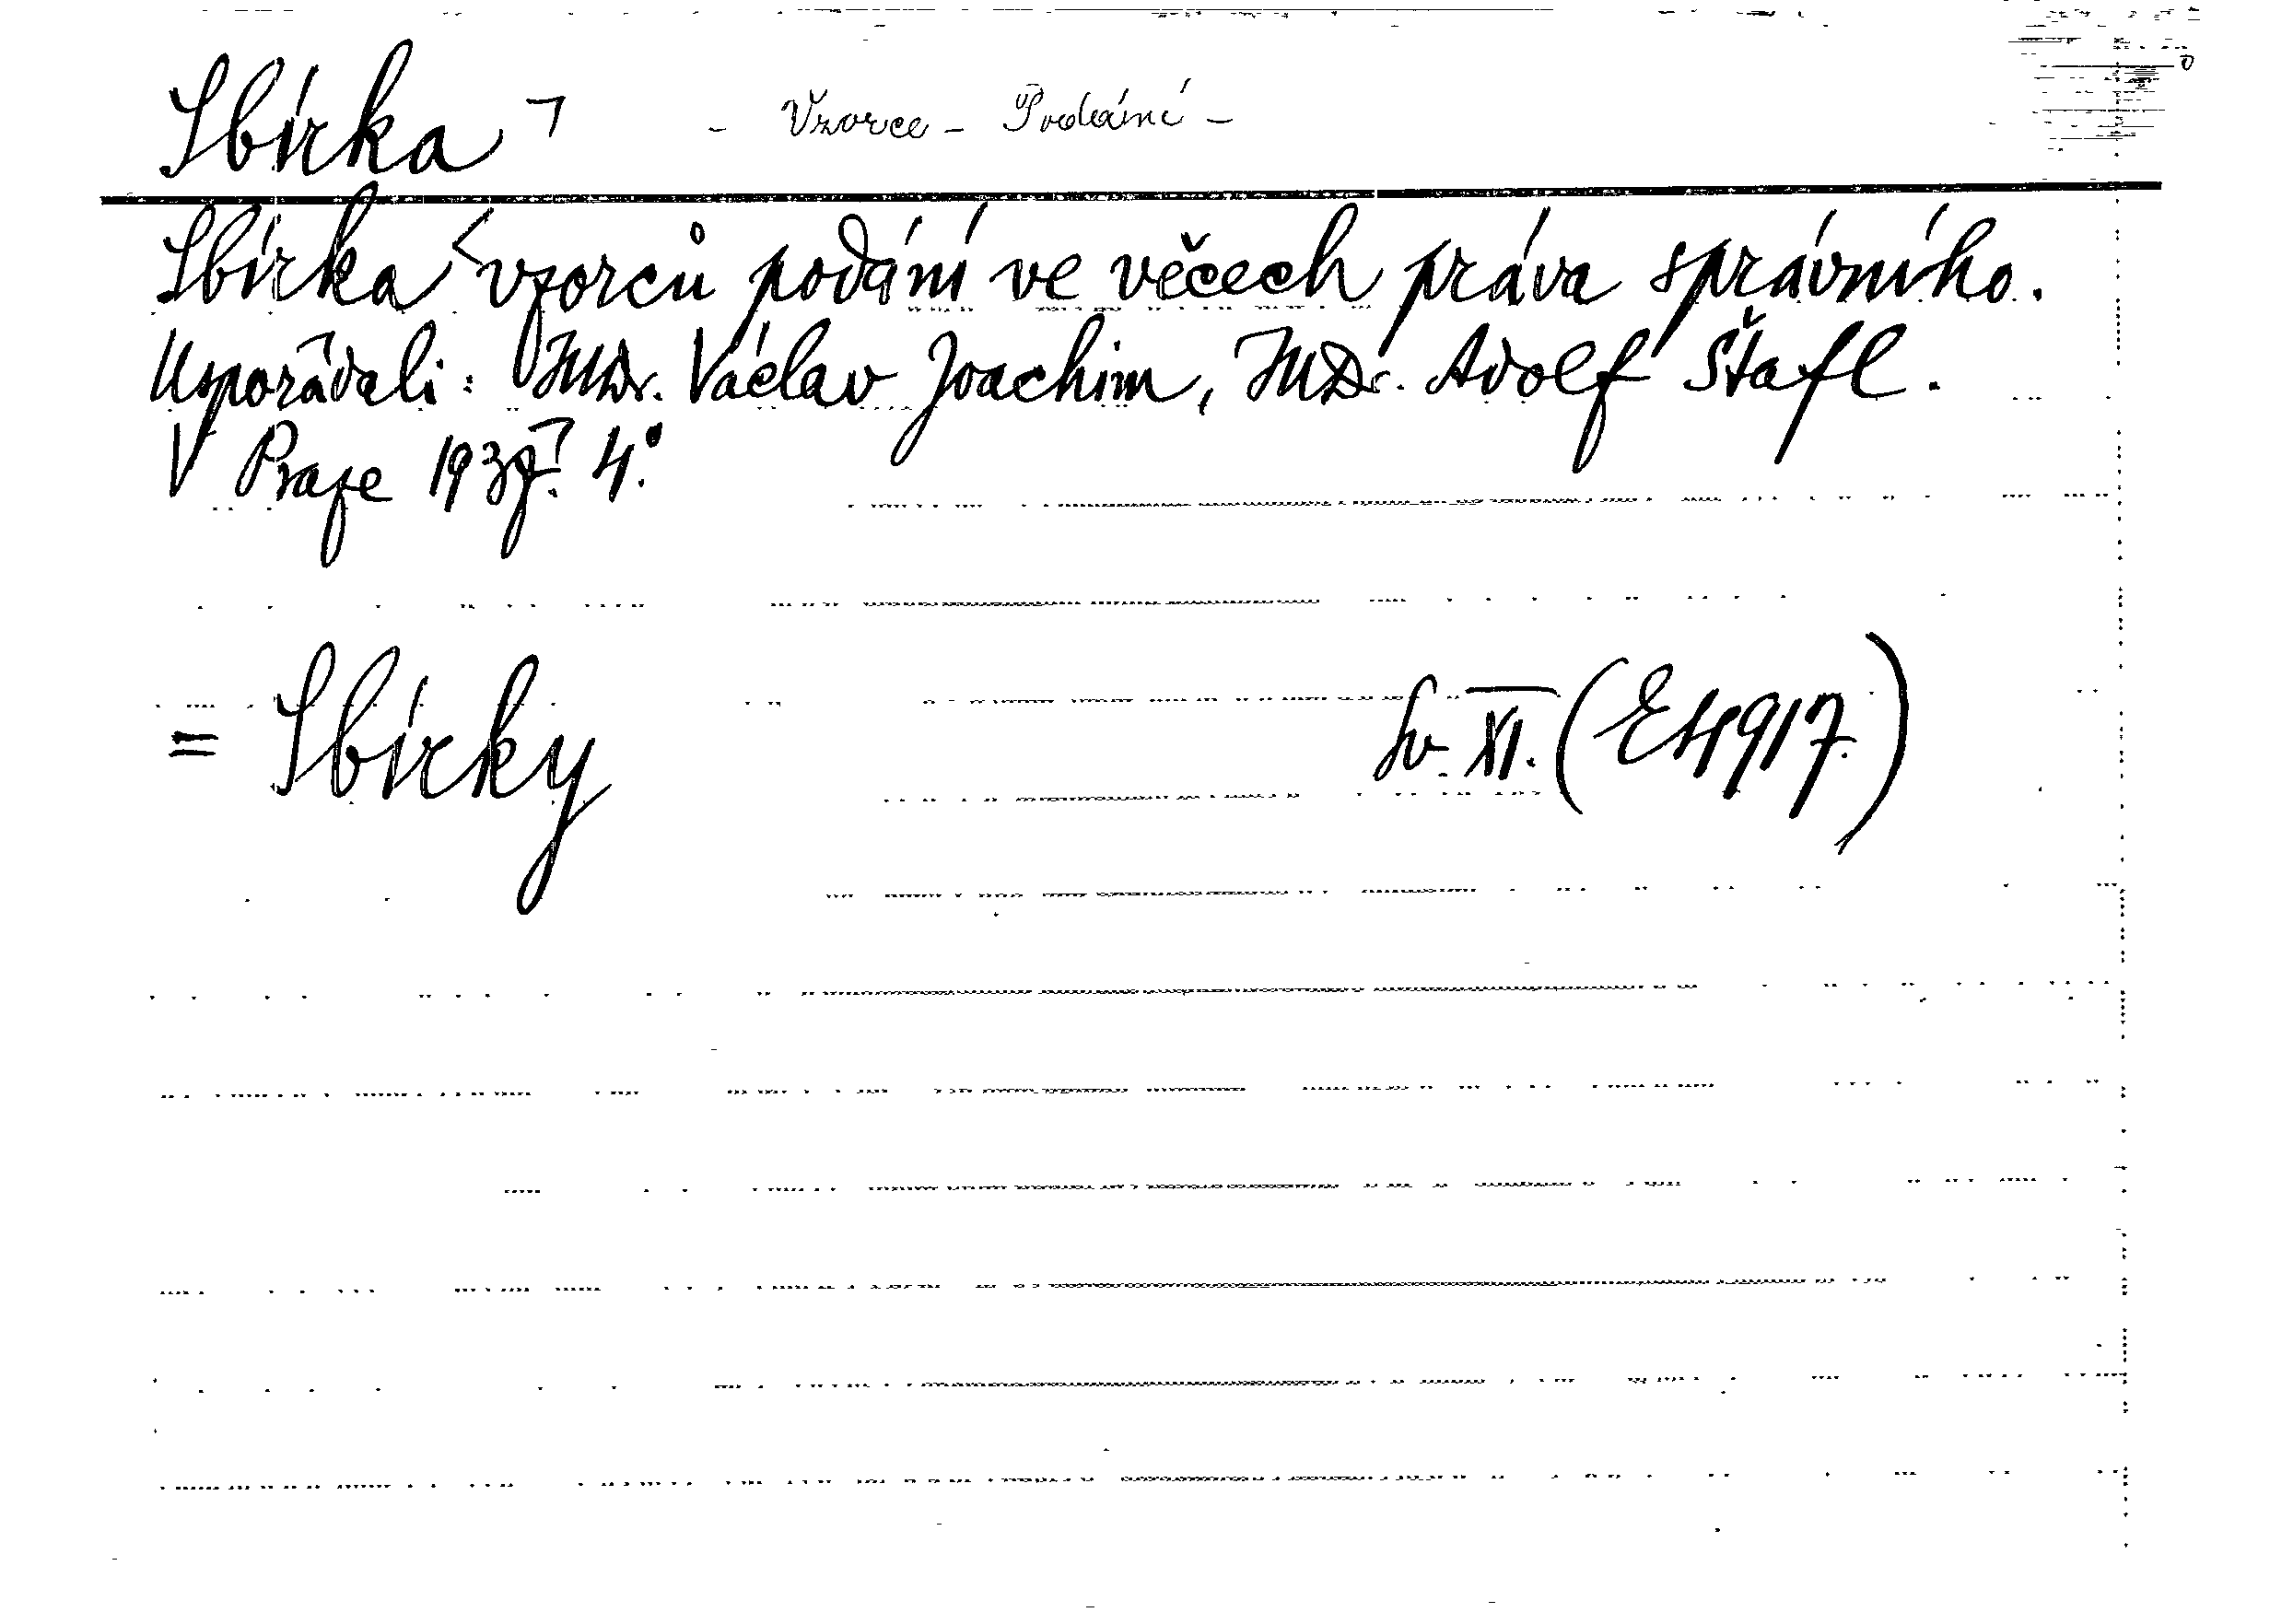 Sbírka ¬ - Vzorce - Podání -
Sbírka vzorců podání ve věcech práva správního.
Uspořádali: JUDr. Václav Joachim, JUDr. Adolf Štafl.
V Praze 4°.
= Sbírky Sv. XI. (E4917.)